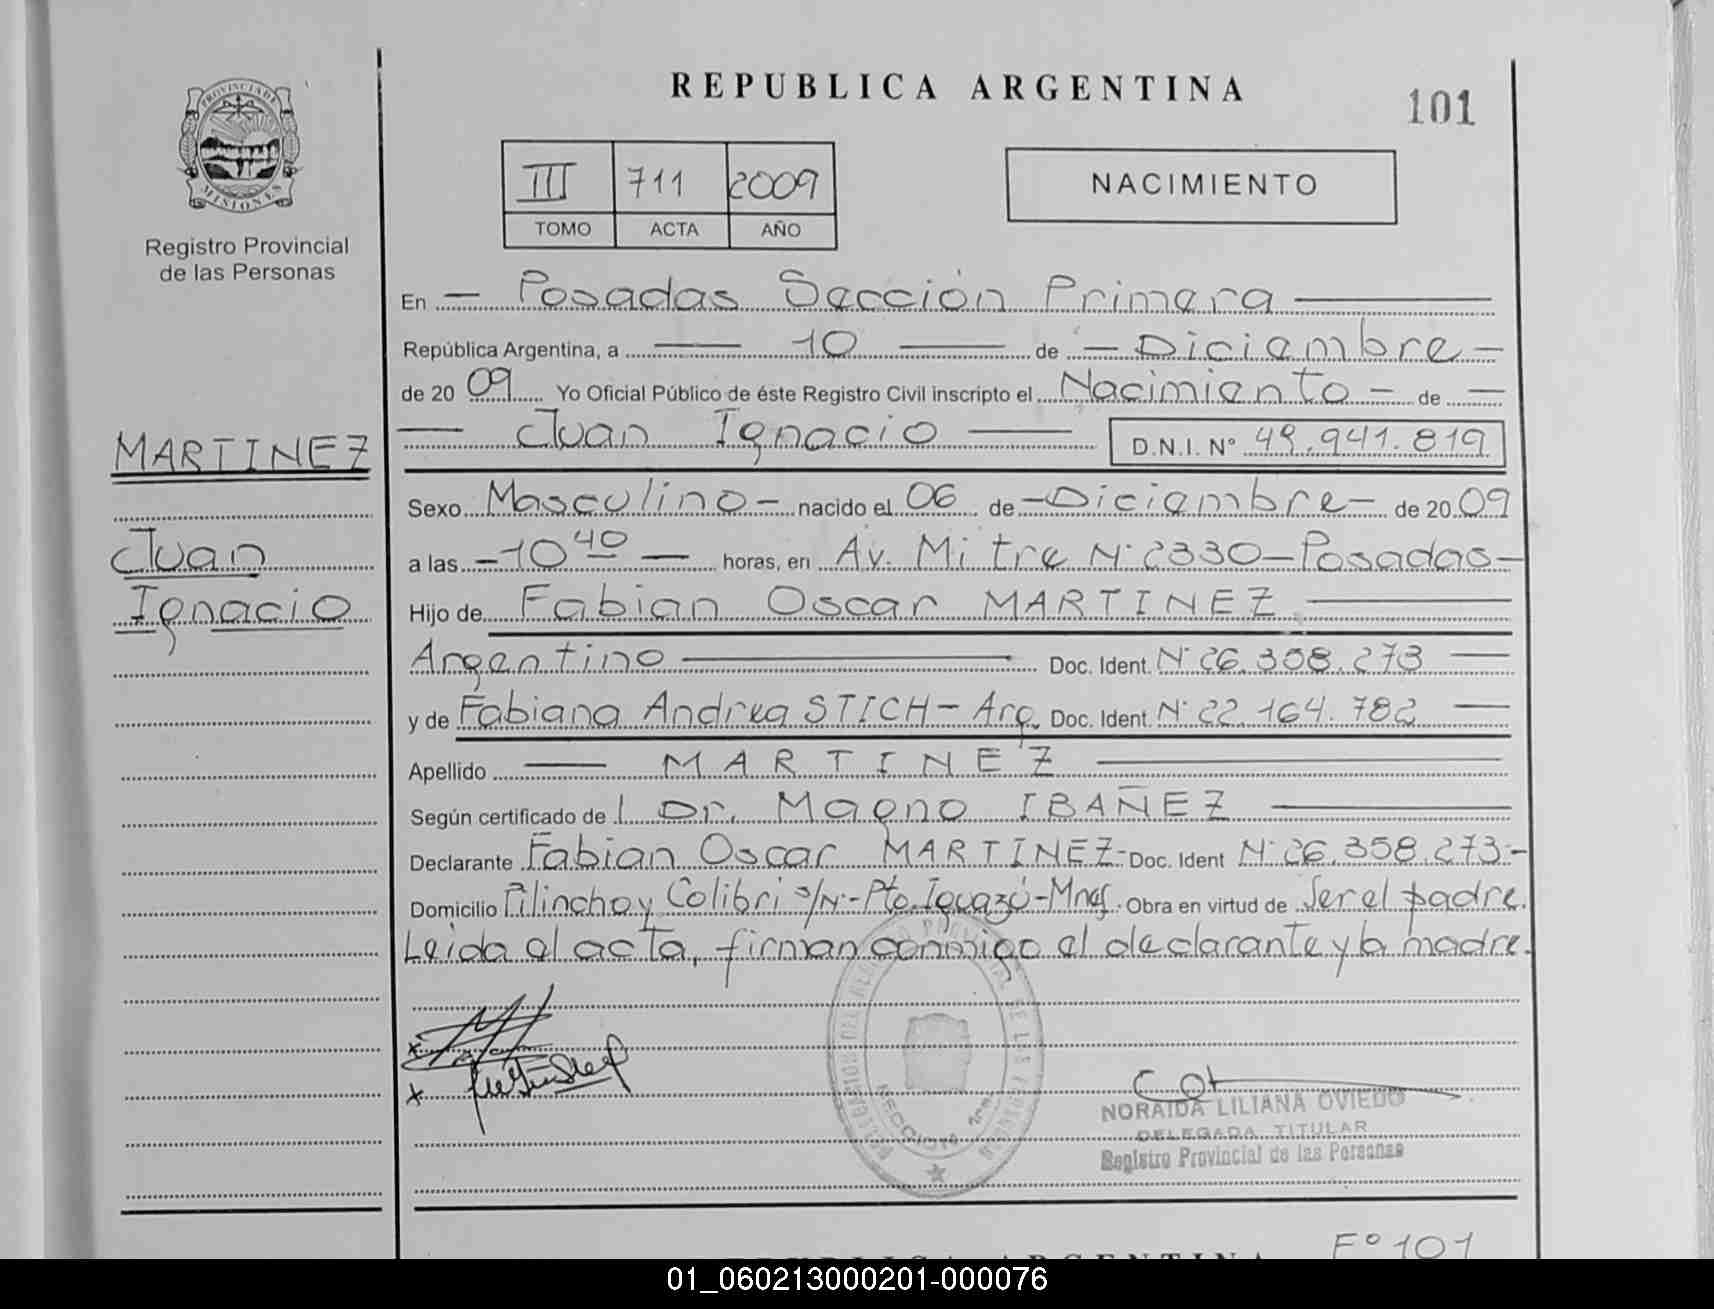 REPUBLICA ARGENTINA
101
PROVINCIA DE
MISIONES
Registro Provincial
de las Personas
III 711 2009
TOMO ACTA AÑO
NACIMIENTO
En — Posadas Sección Primera —
República Argentina, a — 10 — de — Diciembre —
de 20 09 Yo Oficial Público de éste Registro Civil inscripto el Nacimiento — de —
— Juan Ignacio — D.N.I. N° 49.941.819
MARTINEZ
Juan
Ignacio
Sexo Masculino — nacido el 06 de — Diciembre — de 20 09
a las — 10 40 — horas, en Av. Mitre N° 2330 — Posadas —
Hijo de Fabian Oscar MARTINEZ —
Argentino — Doc. Ident. N° 26.358.273 —
y de Fabiana Andrea STICH — Arg. Doc. Ident N° 22.164.782 —
Apellido — MARTINEZ —
Según certificado de l Dr. Magno IBAÑEZ —
Declarante Fabian Oscar MARTINEZ - Doc. Ident N° 26.358.273 -
Domicilio Pilincho y Colibri s/N° - Pto. Iguazú - Mnes. Obra en virtud de Ser el padre.
Leida el acta, firman conmigo el declarante y la madre.
x
x
SECCION 1ra.
NORAIDA LILIANA OVIEDO
DELEGADA TITULAR
Registro Provincial de las Personas
F° 101
REPUBLICA ARGENTINA
01_060213000201-000076